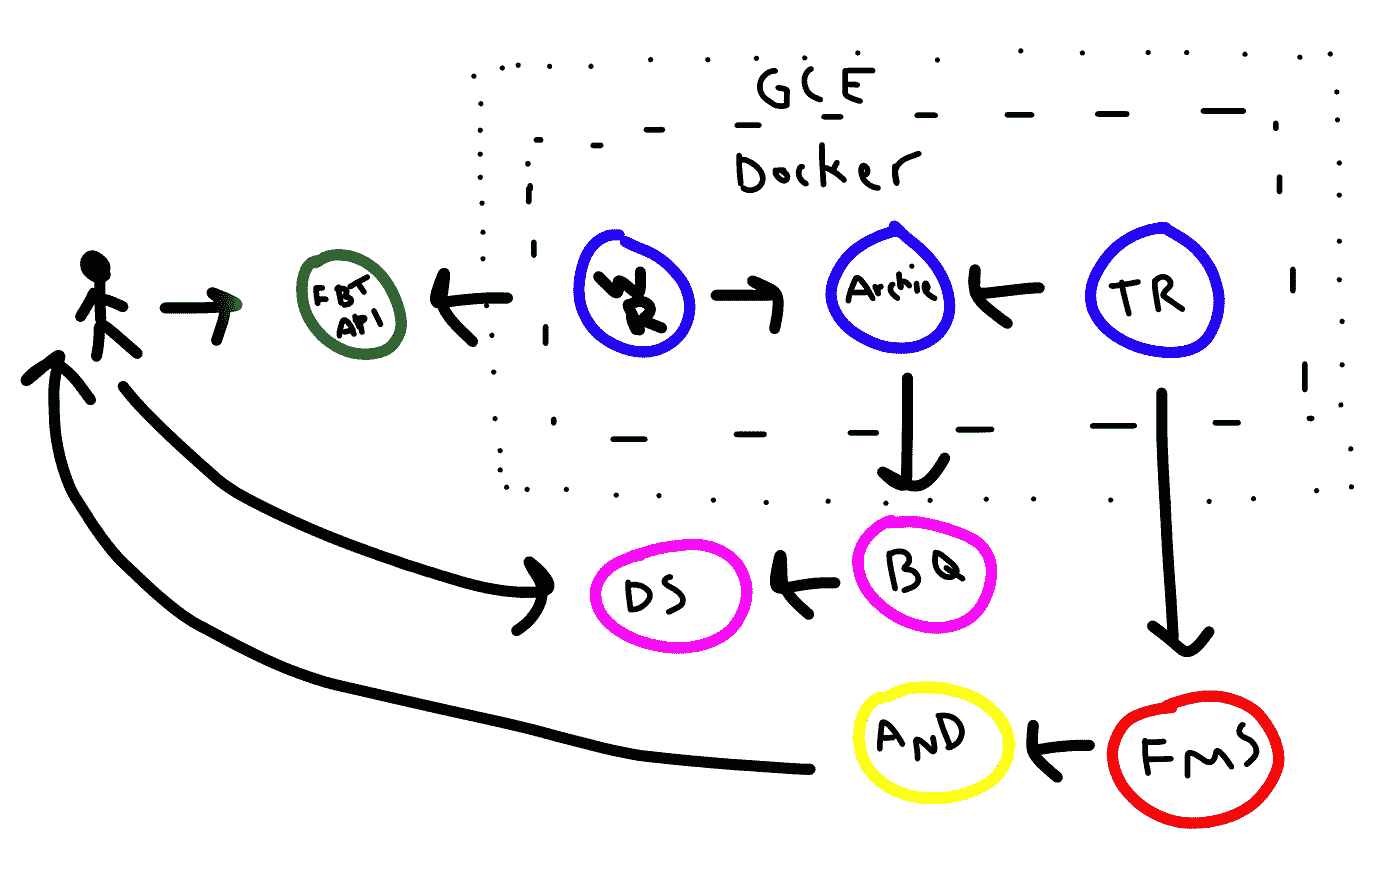 GCE
Docker
FBT
API
W
R
Archie
TR
DS
BQ
AND
FMS